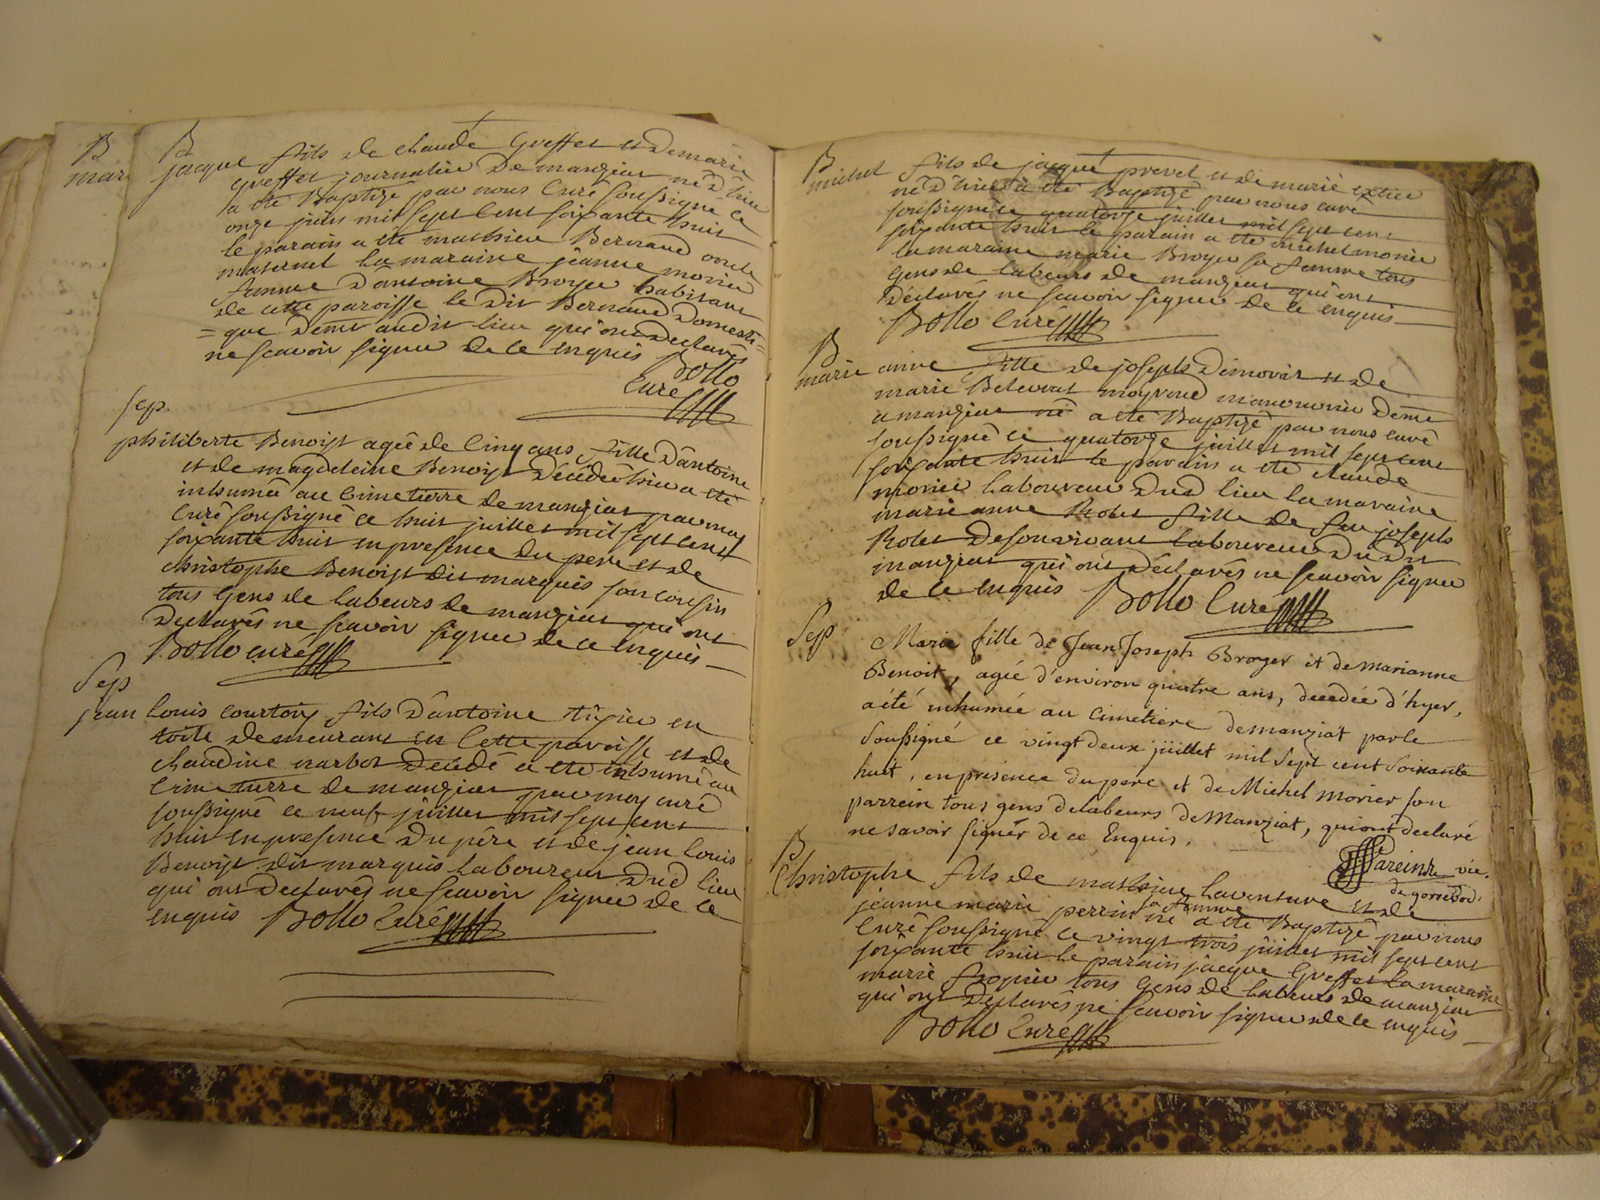 B
mar
B
jacque fils de claude Greffet et de marie
Greffet journalier de manziat né d'hier
a été Baptizé par nous Curé soussigné ce
onze juin mil sept cent soixante huit
le parain a été mathieu Bernard oncle
maternel la maraine jeanne morier
femme d'antoine Broyer habitant
de cette paroisse le dit Bernard domesti=
=que demt audit lieu qui ont declarés
ne scavoir signer de ce enquis Bollo
Curé
sep.
philiberte Benoist agée de cinq ans, fille d'antoine
et de magdeleine Benoist décédée hier a été
inhumée au cimetierre de manziat par moy
Curé soussigné ce huit juillet mil sept cent
soixante huit en presence du pere et de
christophe Benoist dit marquis son cousin
tous Gens de labeurs de manziat qui ont
declarés ne scavoir signer de ce enquis
Bollo curé
Sep
jean Louis courtoy fils d'antoine en
toile demeurant en cette paroisse et de
claudine narbot décédé a été inhumé au
Cimetierre de manziat par moy curé
soussigné ce neuf juillet mil sept cent
huit en presence du père et de jean Louis
Benoist dit marquis Laboureur dud lieu
qui ont declarés ne scavoir signer de ce
enquis Bollo Curé
B
michel fils de jacque prevet et de marie
né d'hier a été Baptizé par nous curé
soussigné ce quatorze juillet mil sept cent
soixante huit le parain a été michel morier
la maraine marie Broyer sa femme tous
Gens de labeurs de manziat qui ont
déclarés ne scavoir signer de ce enquis
Bollo Curé
B
marie anne fille de joseph et de
marie moyroud manouvrier demt
a manziat né a été Baptizé par nous curé
soussigné ce quatorze juillet mil sept cent
soixante huit le parain a été claude
morier laboureur dud lieu la maraine
marie anne Robet fille de feu joseph
Robet de son vivant laboureur du dit
manziat qui ont déclarés ne scavoir signer
de ce enquis Bollo Curé
Sep
Marie fille de Jean Joseph Broyer et de Marianne
Benoit, agée d'environ quatre ans, decedée d'hyer,
a été inhumée au Cimetiere de Manziat par le
Soussigné ce vingt deux juillet mil Sept cent Soixante
huit, en présence du pere et de Michel Morier son
parrein tous gens de labeurs de Manziat, qui ont declaré
ne savoir signer de ce Enquis.
Pareins vic.
de gorrevod.
B
Christophe fils de mathieu Laventure et de
jeanne marie perrin sa femme né a été Baptizé par nous
Curé soussigné ce vingt trois juillet mil sept cent
soixante huit le parain jacque Greffet la maraine
marie tous Gens de labeurs de manziat
qui ont declarés ne scavoir signer de ce enquis
Bollo Curé